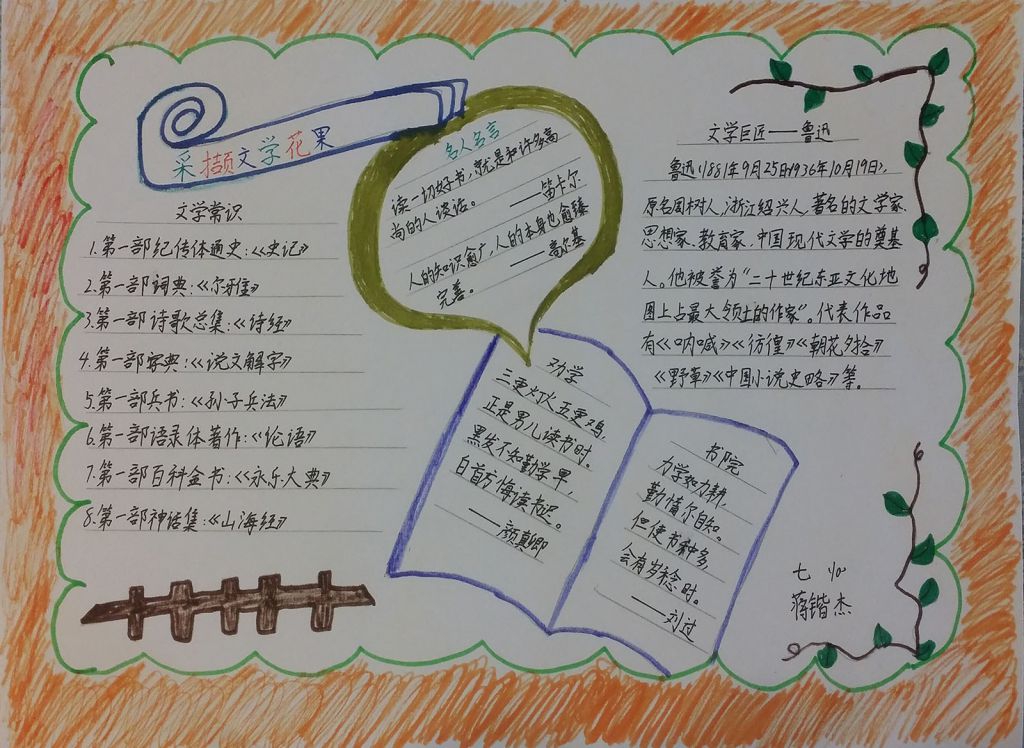 采撷文学花果
文学常识
1.第一部纪传体通史:《史记》
2.第一部词典:《尔雅》
3.第一部诗歌总集:《诗经》
4.第一部字典:《说文解字》
5.第一部兵书:《孙子兵法》
6.第一部语录体著作:《论语》
7.第一部百科全书:《永乐大典》
8.第一部神话集:《山海经》
名人名言
读一切好书,就是和许多高
尚的人谈话。
——笛卡尔
人的知识愈广,人的本身也愈臻
完善。——高尔基
劝学
三更灯火五更鸡,
正是男儿读书时。
黑发不知勤学早,
白首方悔读书迟。
——颜真卿
书院
力学如力耕,
勤惰尔自知。
但使书种多
会有岁稔时。
——刘过
文学巨匠——鲁迅
鲁迅(1881年9月25日1936年10月19日),
原名周树人,浙江绍兴人,著名的文学家、
思想家、教育家,中国现代文学的奠基
人。他被誉为“二十世纪东亚文化地
图上占最大领土的作家”。代表作品
有《呐喊》《彷徨》《朝花夕拾》
《野草》《中国小说史略》等。
蒋锴杰